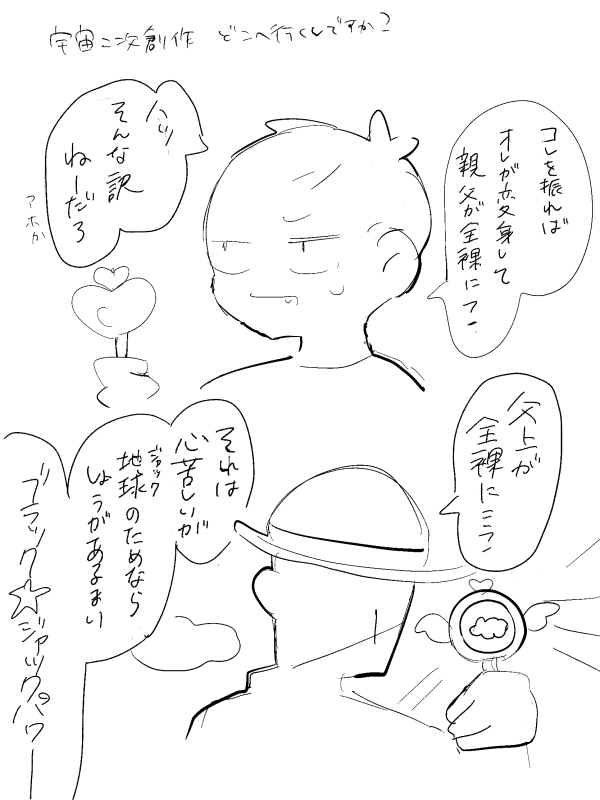 宇宙二次創作 どこへ行くんですか?
コレを振れば
オレが変身して
親父が全裸に?
ハッ
そんな訳
ねーだろ
アホか
父上が
全裸に…?
それは
心苦しいが
地球のためなら
ジャック
しょうがあるまい
ブラック☆ジャックパワー